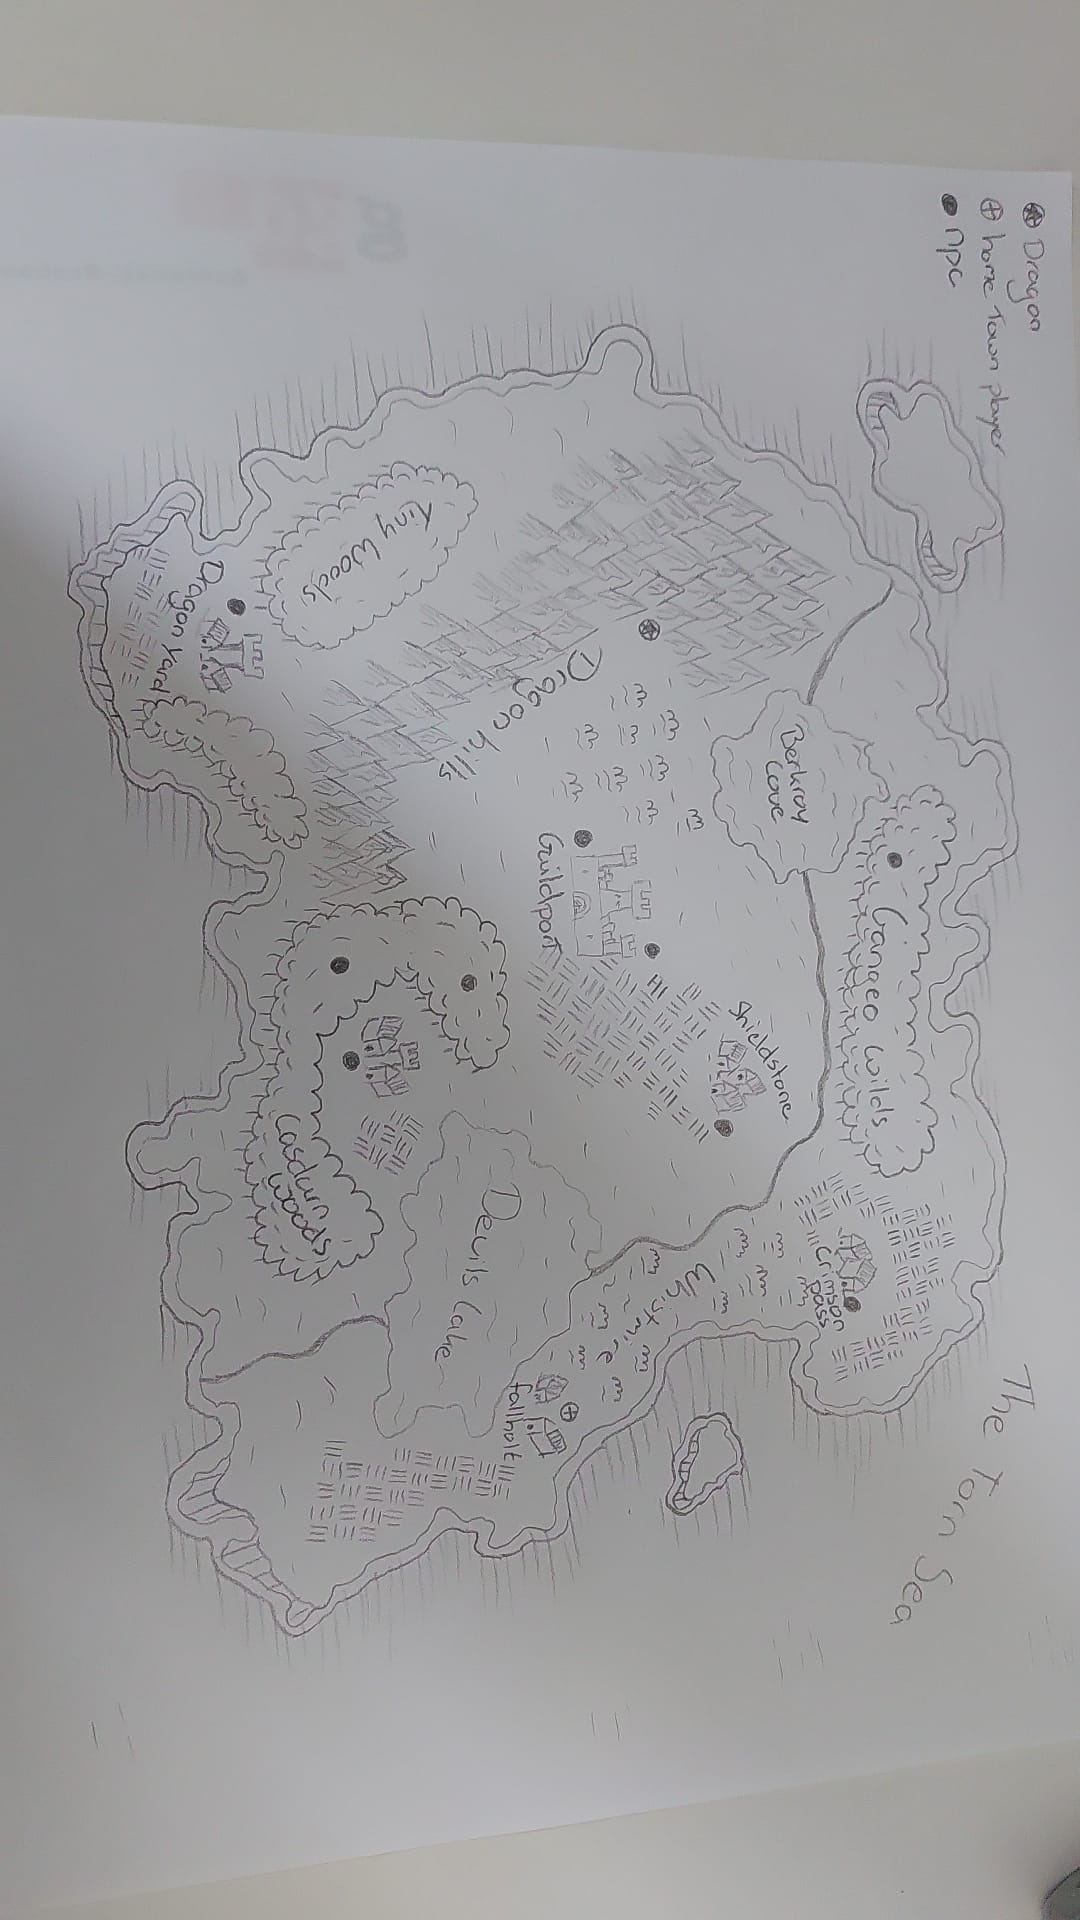 Dragon
home Town player
npc
The Torn Sea
Gangeo Wilds
Crimson
pass
Berkroy
Cove
Shieldstone
Whistmire
Guildport
Dragon hills
fallholt
Devils Lake
Tiny Woods
Casdurn
Woods
Dragon Yard